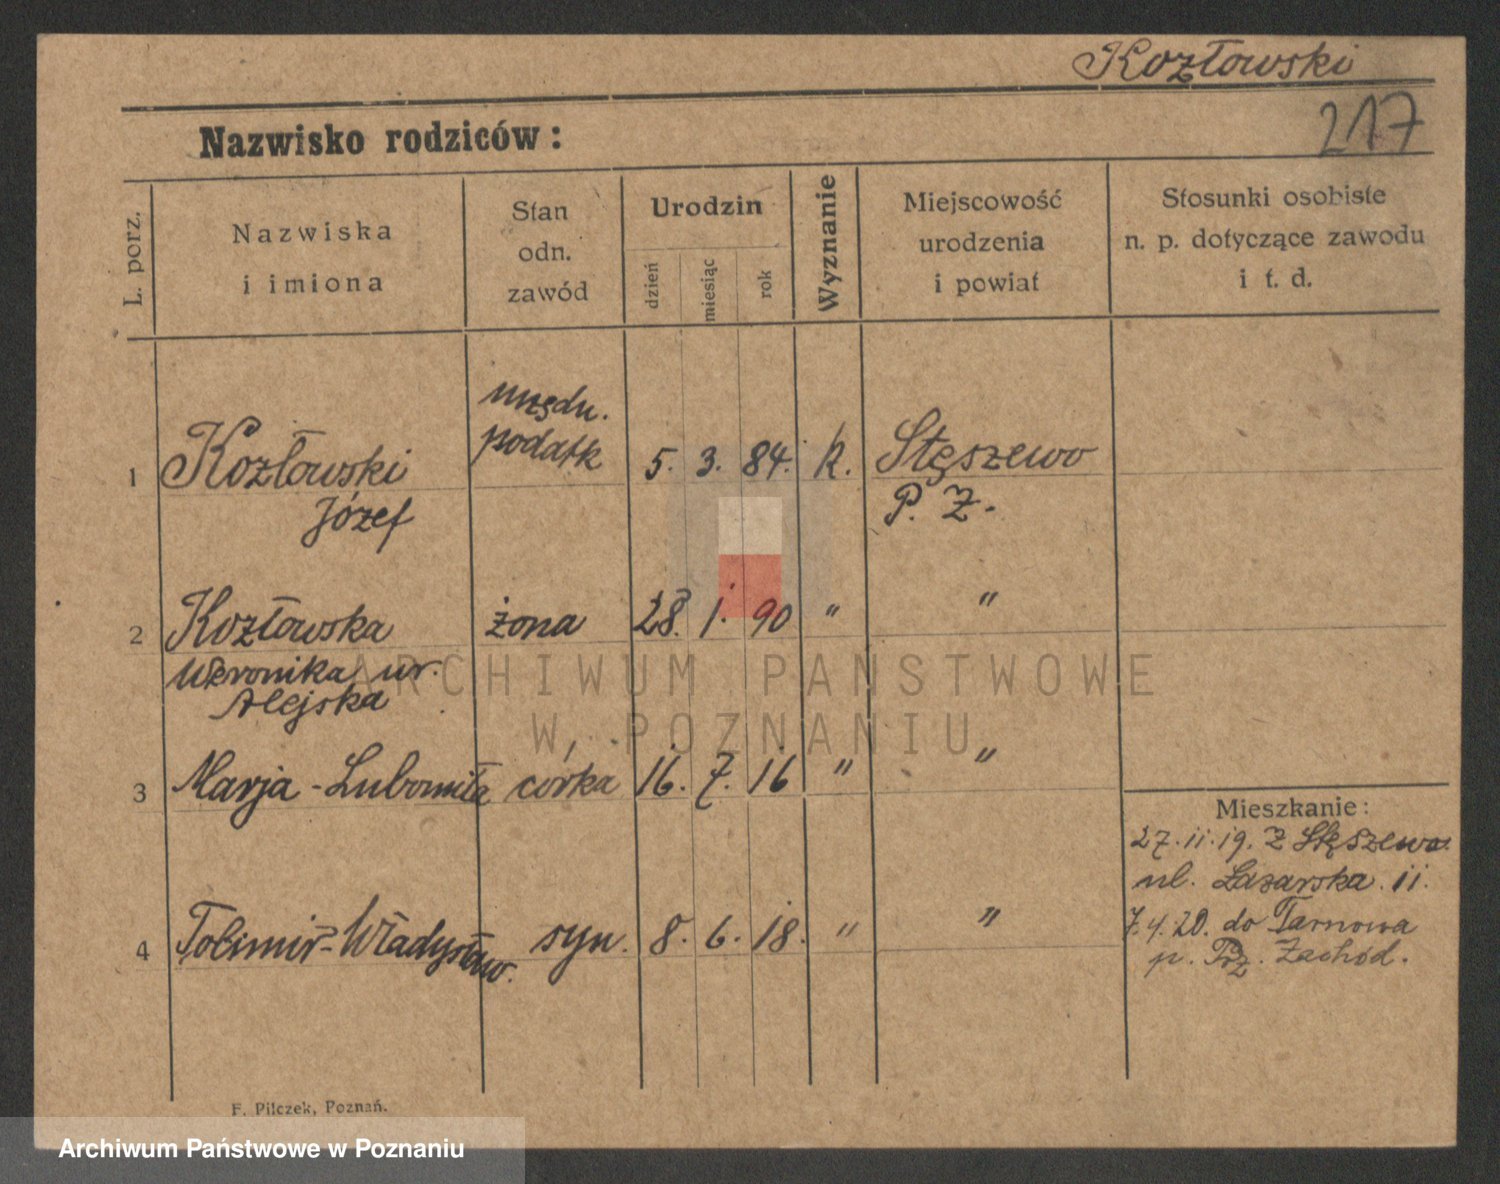 Kozłowski
217
Nazwisko rodziców:
L. porz.
Nazwiska
i imiona
Stan
odn.
zawód
Urodzin
dzień
miesiąc
rok
Wyznanie
Miejscowość
urodzenia
i powiat
Stosunki osobiste
n. p. dotyczące zawodu
i t. d.
urzędn.
podatk
1 Kozłowski 5. 3. 84. k. Stęszewo
Józef P. Z.
2 Kozłowska żona 28. 1. 90 " "
Weronika ur.
Alejska
3 Marja-Lubomiła córka 16. 7. 16 " "
4 Tolimir-Władysław. syn. 8. 6. 18. " "
Mieszkanie:
27.11.19. z Stęszewa.
ul. Łazarska. 11.
7.4.20. do Tarnowa
p. Poz. Zachód.
F. Pilczek, Poznań.
ARCHIWUM PAŃSTWOWE
W POZNANIU
Archiwum Państwowe w Poznaniu